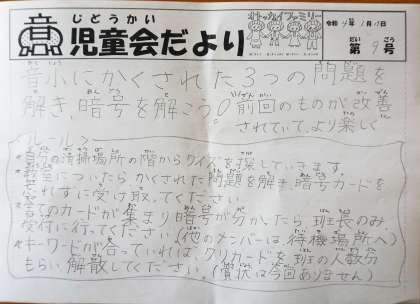 じどうかい
児童会だより
オトッカイファミリー
令和4年1月18日
第9号
音小にかくされた3つの問題を
解き、暗号を解こう。前回のものが改善
されていて、より楽しく
ルール
自分の清掃場所の階からクイズを探していきます。
教室についたらかくされた問題を解き、暗号カードを
忘れずに受け取ってください。
全てのカードが集まり暗号が分かったら班長のみ、
受付に行ってください。(他のメンバーは待機場所へ)
キーワードが合っていれば、クリカードを班の人数分
もらい、解散してください。(賞状は今回ありません)